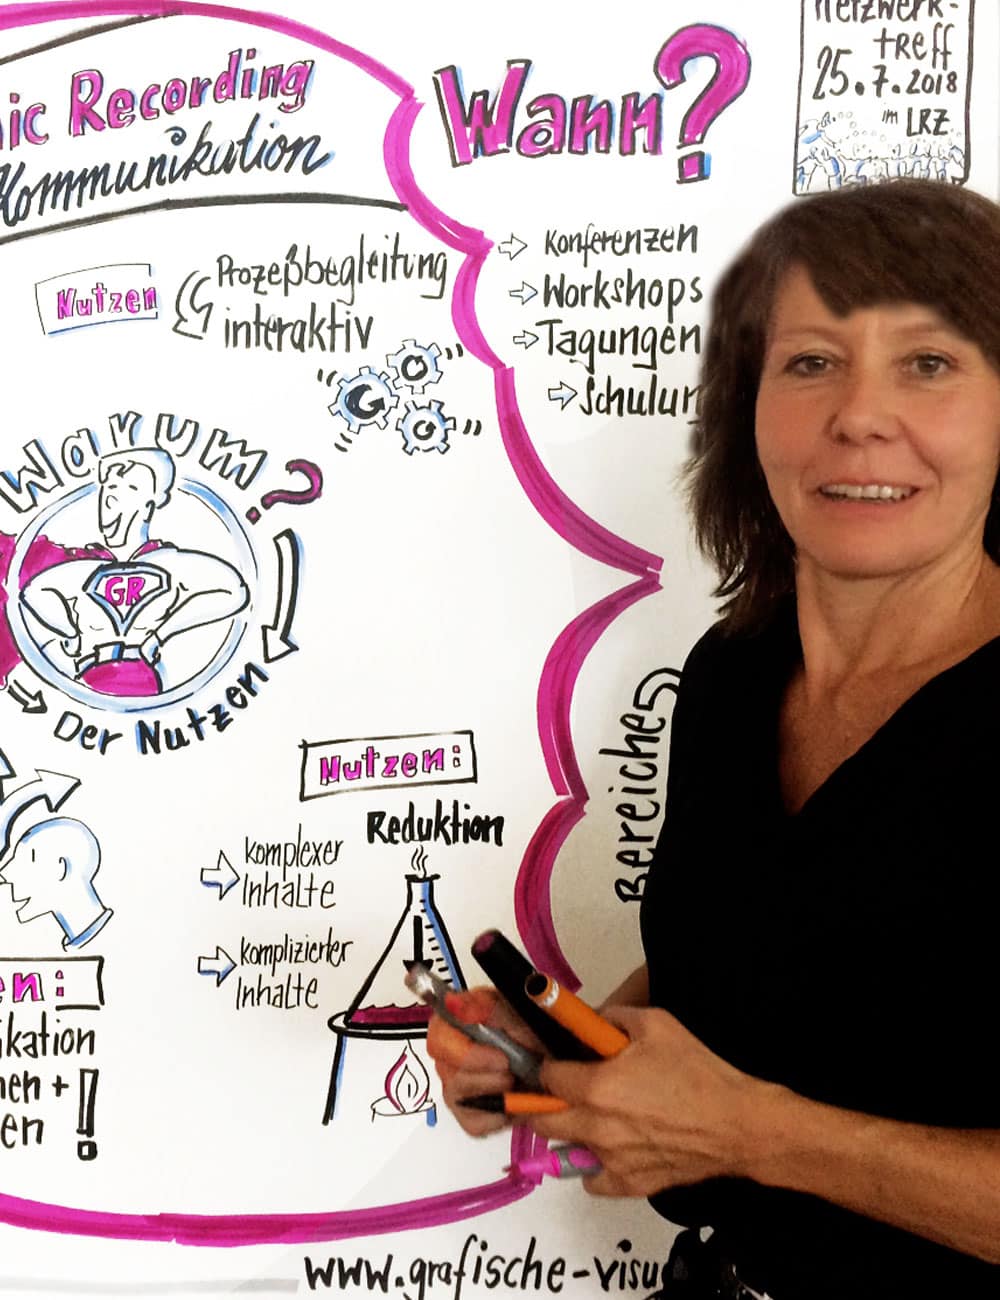 Recording
Kommunikation
Wann?
Netzwerk-
treff
25.7.2018
im LRZ
Nutzen
Prozeßbegleitung
interaktiv
⇨ Konferenzen
⇨ Workshops
⇨ Tagungen
⇨ Schulun
Warum?
GR
Der Nutzen
Nutzen:
Reduktion
⇨ komplexer
Inhalte
⇨ komplizierter
Inhalte
Bereiche
en:
ikation
hen +
en !
www.grafische-visu